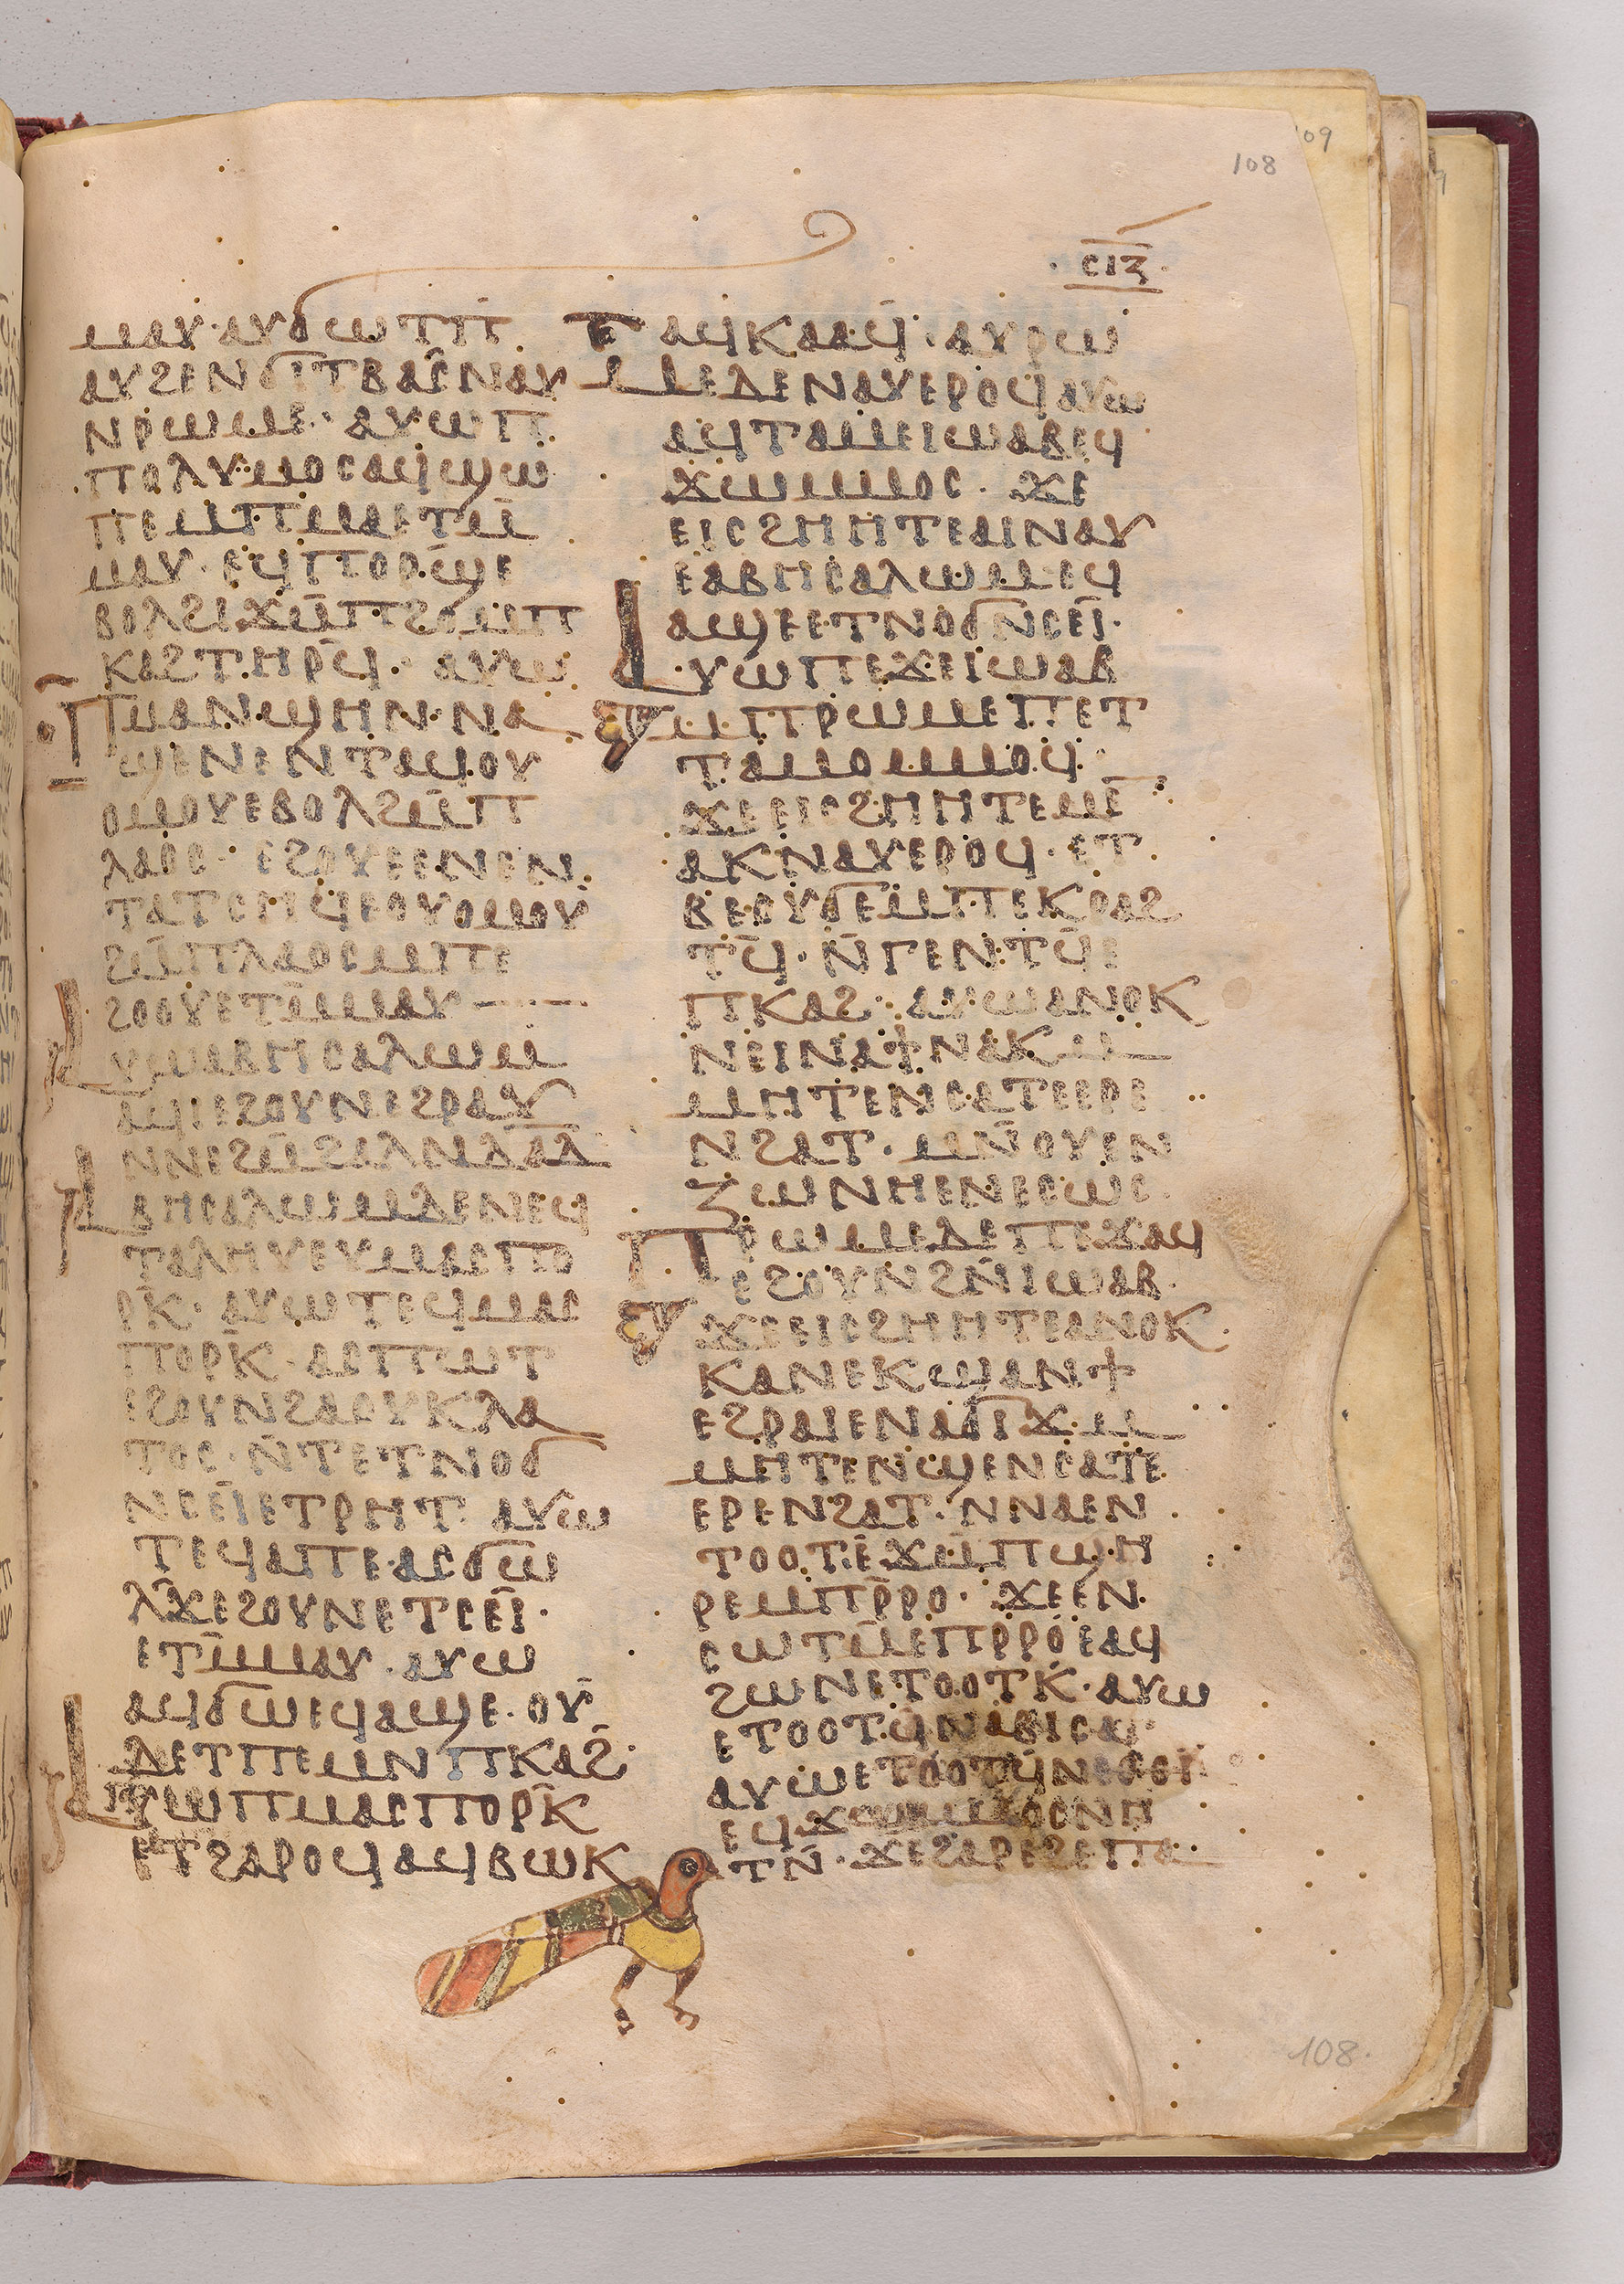 109
108
ⲥⲓⲍ
ⲙⲁⲩ·ⲁⲩϭⲱⲧⲡ
ⲁⲩϩⲉⲛϭⲓⲧⲃⲁⲥⲛⲁⲩ
ⲛⲣⲱⲙⲉ·ⲁⲩⲱⲡ
ⲡⲟⲗⲩⲙⲟⲥⲁϥϣⲱ
ⲡⲉⲙⲡⲙⲁⲉⲧⲙ̄
ⲙⲁⲩ·ⲉϥⲡⲟⲣϣⲉ
ⲃⲟⲗϩⲓϫⲙ̄ⲡϩⲟⲙⲡ
ⲕⲁϩⲧⲏⲣϥ̄·ⲁⲩⲱ
ⲡⲙⲁⲛϣⲏⲛ·ⲛⲁ
ϣⲉⲛⲉⲛⲧⲁϥⲟⲩ
ⲟⲙⲟⲩⲉⲃⲟⲗϩⲙ̄ⲡ
ⲗⲁⲟⲥ·ⲉϩⲟⲩⲉⲉⲛⲉⲛ
ⲧⲁⲧⲥⲏϥⲉⲟⲩⲟⲙⲟⲩ
ϩⲙ̄ⲡⲗⲁⲟⲥⲙⲡⲉ
ϩⲟⲟⲩⲉⲧⲙ̄ⲙⲁⲩ
ⲁⲩⲱⲁⲃⲏⲥⲁⲗⲱⲙ
ⲁϥⲓⲉϩⲟⲩⲛⲉϩⲣⲁⲩ
ⲛⲛⲉϩⲙ̄ϩⲁⲗⲛⲇⲁⲇ
ⲁⲃⲏⲥⲁⲗⲱⲙⲇⲉⲛⲉϥ
ⲧⲁⲗⲏⲩⲉⲩⲙⲁⲥⲡⲟ
ⲣⲕ̄·ⲁⲩⲱⲧⲉϥⲙⲁⲥ
ⲡⲟⲣⲕ̄·ⲁⲥⲡⲱⲧ
ⲉϩⲟⲩⲛϩⲁⲟⲩⲕⲗⲁ
ⲧⲟⲥ·ⲛ̄ⲧⲉⲧⲛⲟϭ
ⲛⲥⲉⲓ̄ⲉⲧⲣⲏⲧ·ⲁⲩⲱ
ⲧⲉϥⲁⲡⲉ·ⲁⲥϭⲱ
ⲗϫⲉϩⲟⲩⲛⲉⲧⲥⲉⲓ̄·
ⲉⲧⲙ̄ⲙⲁⲩ·ⲁⲩⲱ
ⲁϥϭⲱⲉϥⲁϣⲉ·ⲟⲩ
ⲇⲉⲧⲡⲉⲙⲛⲡⲕⲁϩ·
ⲁⲩⲱⲡⲙⲁⲥⲡⲟⲣⲕ̄
ⲉⲧϩⲁⲣⲟϥⲁϥⲃⲱⲕ
ⲉⲁϥⲕⲁⲁϥ·ⲁⲩⲣⲱ
ⲙⲉⲇⲉⲛⲁⲩⲉⲣⲟϥⲁⲩⲱ
ⲁϥⲧⲁⲙⲉⲓⲱⲁⲃⲉϥ
ϫⲱⲙⲙⲟⲥ·ϫⲉ
ⲉⲓⲥϩⲏⲏⲧⲉⲁⲓⲛⲁⲩ
ⲉⲁⲃⲏⲥⲁⲗⲱⲙⲉϥ
ⲁϣⲉⲉⲧⲛⲟϭⲛⲥⲉⲓ̄·
ⲁⲩⲱⲡⲉϫⲉⲓⲱⲁⲃ
ⲙⲡⲣⲱⲙⲉⲡⲉⲧ
ⲧⲁⲙⲟⲙⲙⲟϥ·
ϫⲉⲉⲓⲥϩⲏⲏⲧⲉⲙⲉ
ⲁⲕⲛⲁⲩⲉⲣⲟϥ·ⲉⲧ
ⲃⲉⲟⲩϭⲉⲙⲡⲉⲕⲣⲁϩ
ⲧϥ̄·ⲛ̄ⲅⲉⲛⲧϥ̄ⲉ
ⲡⲕⲁϩ·ⲁⲩⲱⲁⲛⲟⲕ
ⲛⲉⲓⲛⲁϯⲛⲁⲕⲙ
ⲙⲏⲧⲉⲛⲥⲁⲧⲉⲉⲣⲉ
ⲛϩⲁⲧ·ⲙⲛ̄ⲟⲩⲉⲛ
ⲍⲱⲛⲏⲉⲛⲉⲥⲱⲥ
ⲡⲣⲱⲙⲉⲇⲉⲡⲉϫⲁϥ
ⲉϩⲟⲩⲛϩⲛ̄ⲓⲱⲁⲃ·
ϫⲉⲉⲓⲥϩⲏⲏⲧⲉⲁⲛⲟⲕ
ⲕⲁⲛⲉⲕϣⲁⲛϯ
ⲉϩⲣⲁⲓⲉⲛⲁϭⲓϫ·ⲙ
ⲙⲏⲧⲉⲛϣⲉⲛⲥⲁⲧⲉ
ⲉⲣⲉⲛϩⲁⲧ·ⲛⲛⲁⲉⲛ
ⲧⲟⲟⲧⲉϫⲙ̄ⲡϣⲏ
ⲣⲉⲙⲡⲣ̄ⲣⲟ·ϫⲉⲉⲛ
ⲥⲱⲧⲙ̄ⲉⲡⲣ̄ⲣⲟⲉⲁϥ
ϩⲱⲛⲉⲧⲟⲟⲧⲕ̄·ⲁⲩⲱ
ⲉⲧⲟⲟⲧϥⲛⲁⲃⲓⲥⲁ
ⲁⲩⲱⲉⲧⲟⲟⲧϥⲛⲉⲑⲑⲓ̈
ⲉϥϫⲱⲙⲙⲟⲥⲛⲏ
ⲧⲛ̄·ϫⲉϩⲁⲣⲉϩⲉⲡⲁ
108.